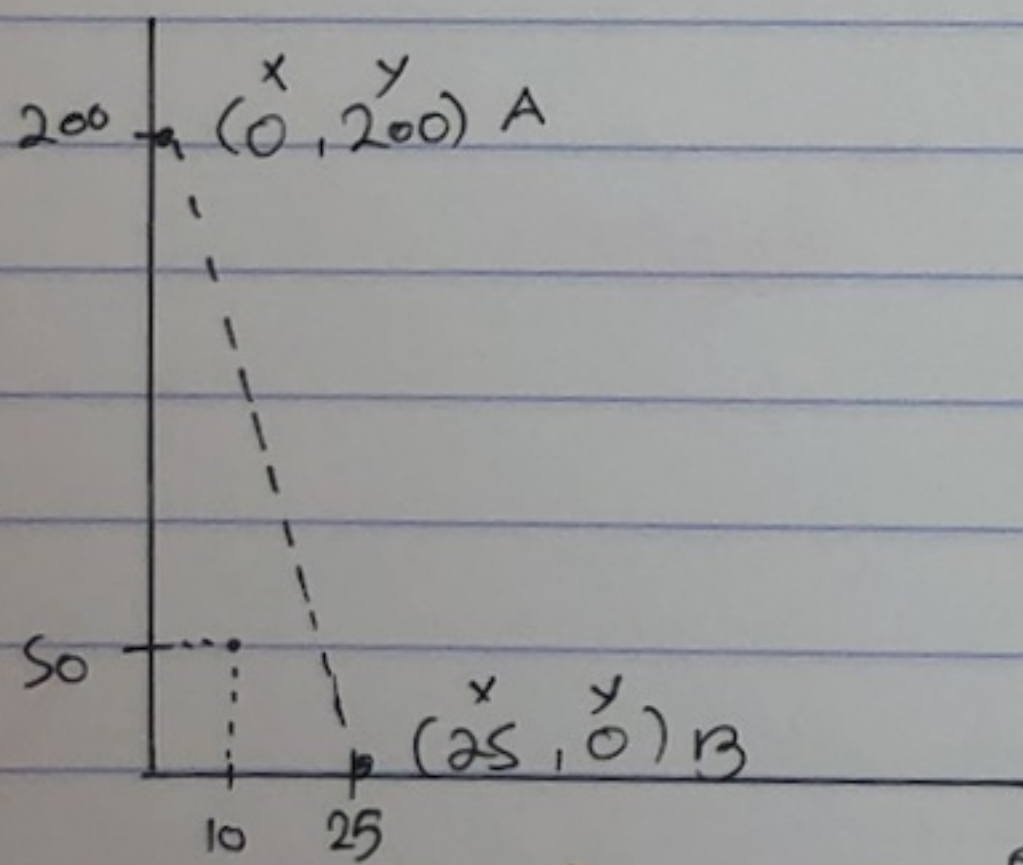 x y
200 (0, 200) A
50
x y
(25, 0) B
10 25